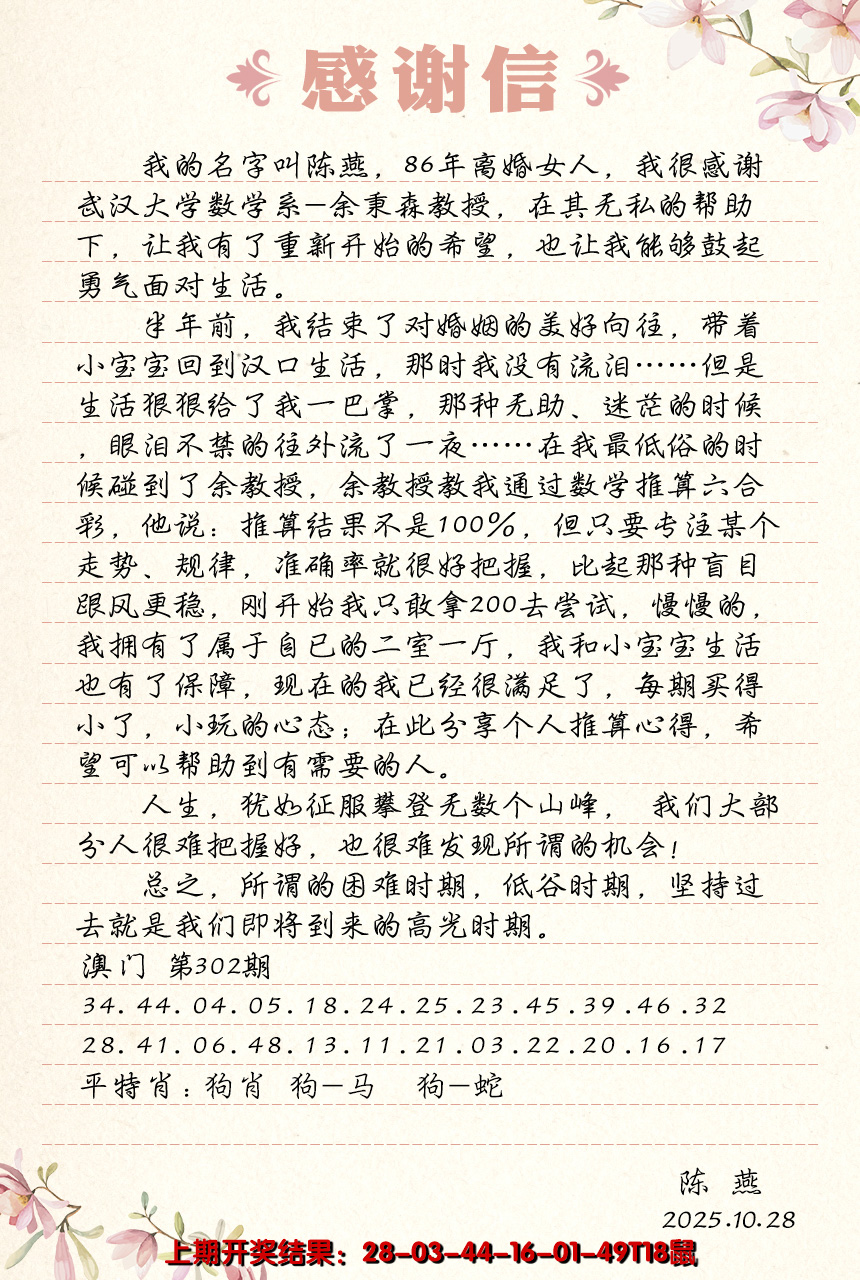 感谢信
我的名字叫陈燕，86年离婚女人，我很感谢
武汉大学数学系—余秉森教授，在其无私的帮助
下，让我有了重新开始的希望，也让我能够鼓起
勇气面对生活。
半年前，我结束了对婚姻的美好向往，带着
小宝宝回到汉口生活，那时我没有流泪……但是
生活狠狠给了我一巴掌，那种无助、迷茫的时候
，眼泪不禁的往外流了一夜……在我最低俗的时
候碰到了余教授，余教授教我通过数学推算六合
彩，他说：推算结果不是100%，但只要专注某个
走势、规律，准确率就很好把握，比起那种盲目
跟风更稳，刚开始我只敢拿200去尝试，慢慢的，
我拥有了属于自已的二室一厅，我和小宝宝生活
也有了保障，现在的我已经很满足了，每期买得
小了，小玩的心态；在此分享个人推算心得，希
望可以帮助到有需要的人。
人生，犹如征服攀登无数个山峰， 我们大部
分人很难把握好，也很难发现所谓的机会！
总之，所谓的困难时期，低谷时期，坚持过
去就是我们即将到来的高光时期。
澳门 第302期
34.44.04.05.18.24.25.23.45.39.46.32
28.41.06.48.13.11.21.03.22.20.16.17
平特肖：狗肖 狗—马 狗—蛇
陈 燕
2025.10.28
上期开奖结果：28-03-44-16-01-49T18鼠